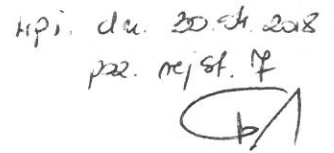 wpj. dn. 30.01.2018
poz. rejst. 7